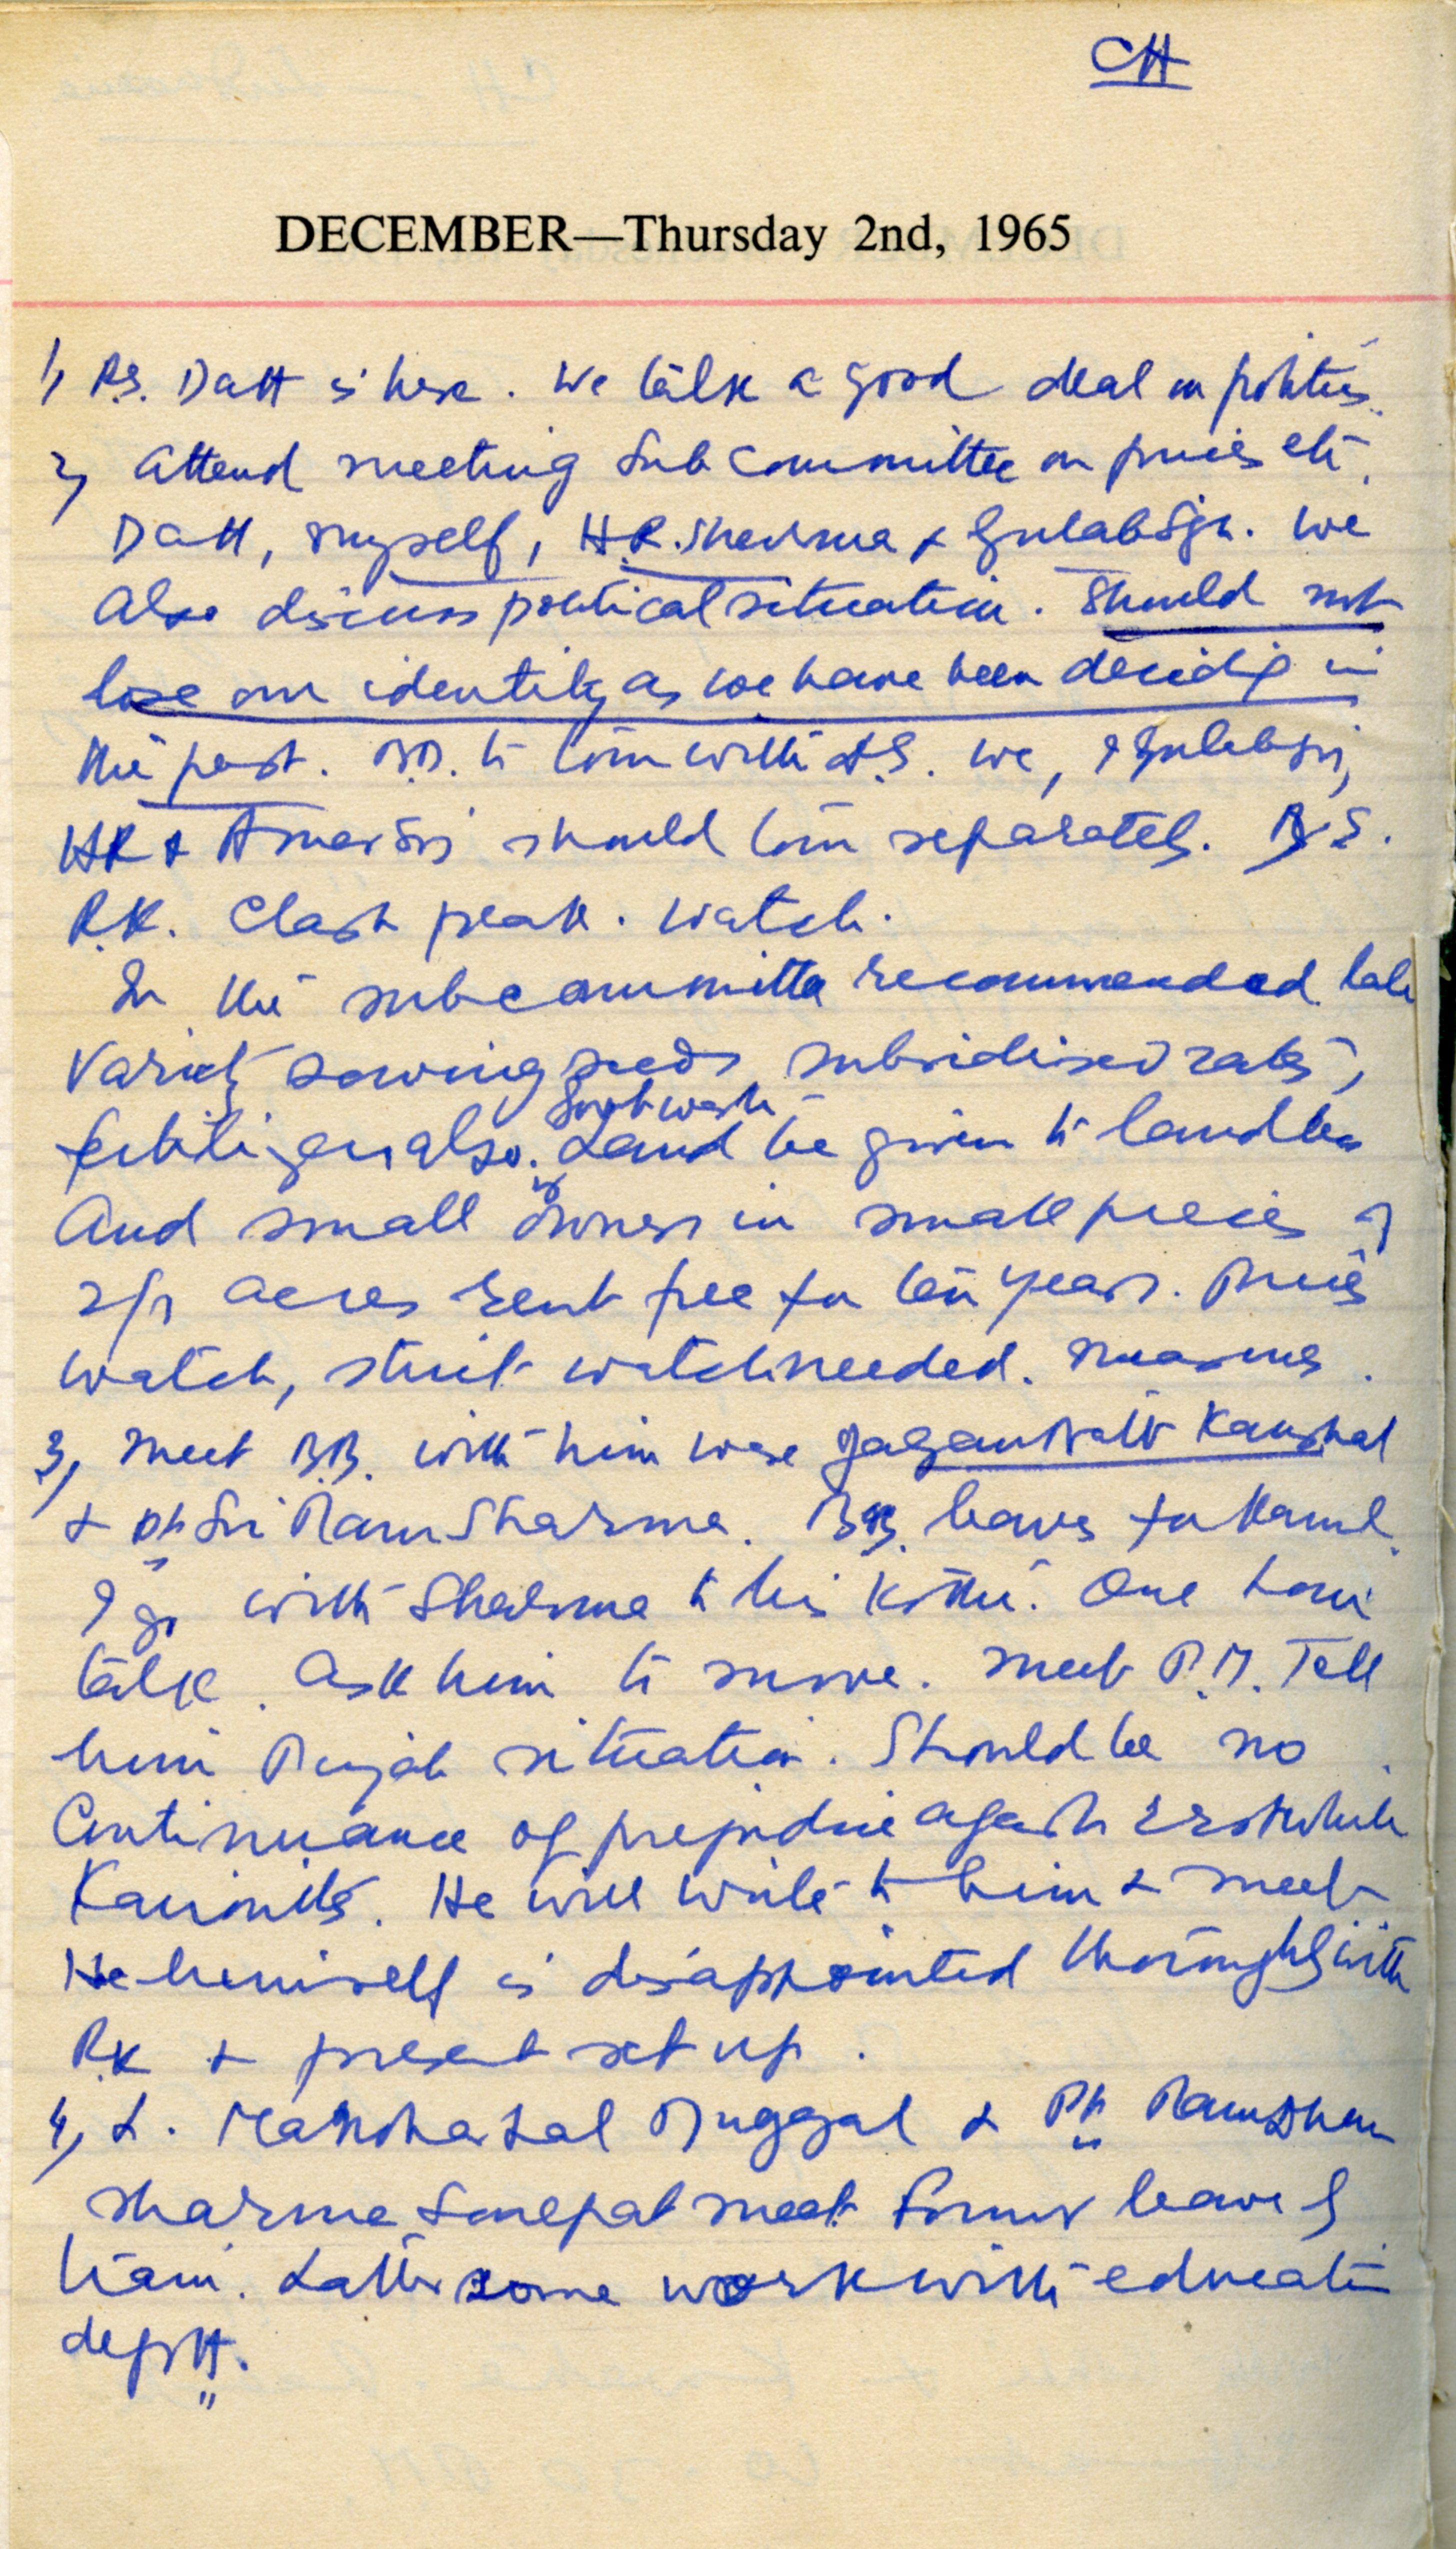 CH
DECEMBER—Thursday 2nd, 1965
1, Datt is here. We talk a good deal on politics.
2, Attend meeting Sub Committee on prices etc.
Datt, myself, H.R. Sharma & Gulab Sgh. We
also discuss political situation. Should not
lose our identity as we have been decidig in
the past. to with we, & Gulabsgh,
HR & should separately.
R.K. Clash peak. Watch.
In the subcommittee recommended late
variety sowing seeds subsidised rates,
fertilizer also. Land be given to landless
And small owners in small pieces of
acres rent free for ten years. Prices
watch, strict watch needed. measures.
3, Meet B.B. with him were Jagannath Kaushal
& Pt Sri Ram Sharma. B.B. leaves for Karnal.
I go with Sharma to his Kothi. One hour
talk. Ask him to move. Meet P.M. Tell
him Punjab situation. Should be no
Continuance of prejudice against erstwhile
Kaironites. He will write to him & meet
He himself is disappointed thoroughly with
RK & present set up.
4, L. Manohar Lal Duggal & Pt Ram Dhan
Sharma Sonepat meet. Former leave &
Latter some work with education
deptt.